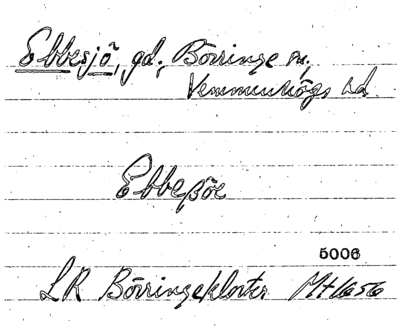 Ebbesjö, gd, Börringe sn,
Vemmenhögs hd
Ebbeßöe
5006
LR Börringekloster Mt 1656